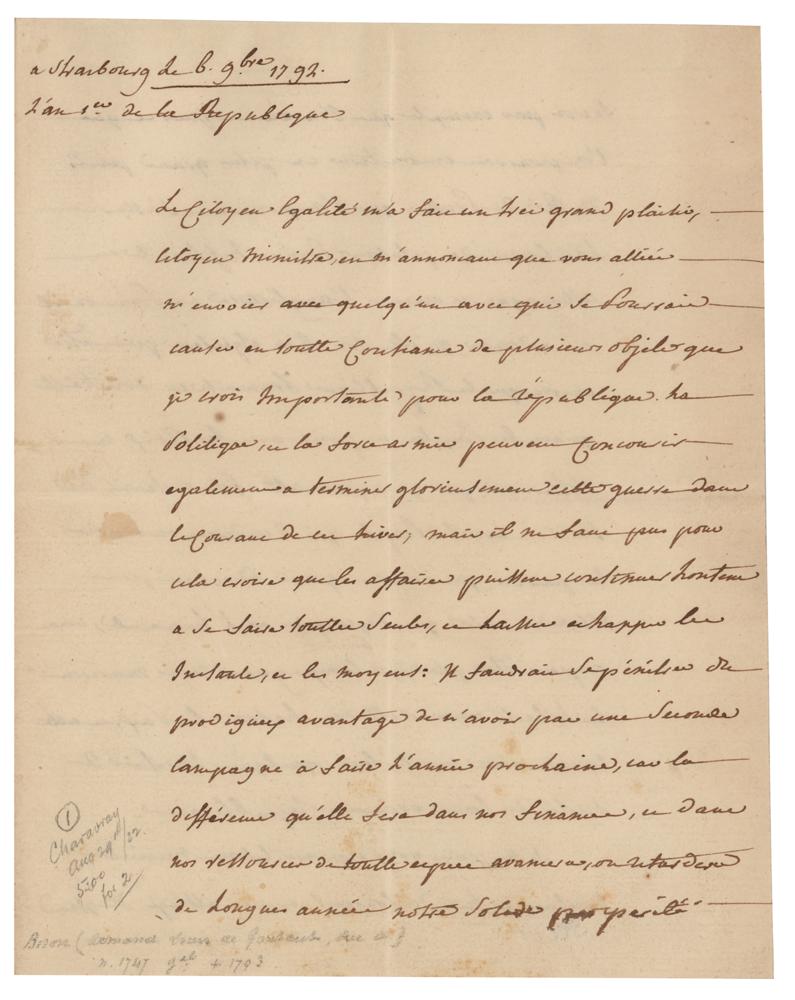 a Strasbourg le 6. 9.bre 1792.
L'an 1.er de la Republique
Le Citoyen Egalité m'a fait un trés grand plaisir,
Citoyen Ministre, en m'annoncant que vous alliés
m'envoier avec quelqu'un avec qui je Pourrais
causer en toutte Confiance de plusieurs objets que
je crois Importants pour la république. La
Politique, et la force armée peuvent Concourir
egalement a terminer glorieusement cette guerre dans
le Courant de cet hiver; mais il ne faut pas pour
cela croire que les affaires puissent continuer
a se faire touttes Seules, et laisser echapper les
Instants, et les moyens: Il faudrait Se pénétrer du
prodigieux avantage de n'avoir pas une Seconde
Campagne à faire L'année prochaine, car la
différence qu'elle fera dans nos finances, et dans
nos ressources de toutte espece avancera, ou retardera
de Longues années notre Solide prospérité
①
Charavay
Aug 29th/22.
5.00
for 2
Biron (Armand Louis de Gontaut, duc de)
n. 1747 gal + 1793